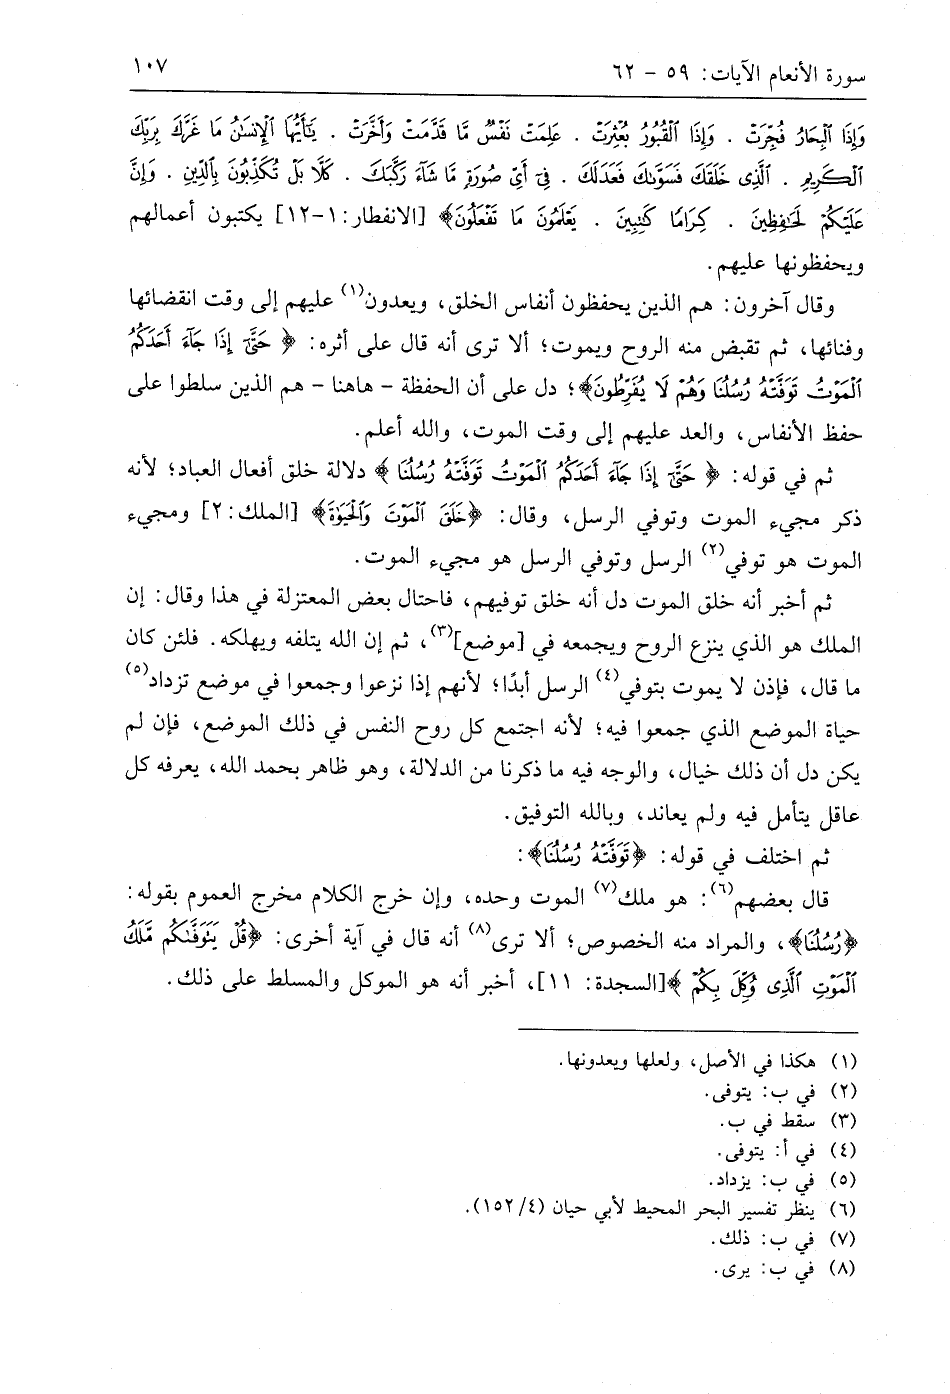 سورة الأنعام الآيات: ٥٩ - ٦٢
١٠٧
وَإِذَا ٱلْبِحَارُ فُجِّرَتْ . وَإِذَا ٱلْقُبُورُ بُعْثِرَتْ . عَلِمَتْ نَفْسٌ مَّا قَدَّمَتْ وَأَخَّرَتْ . يَٰٓأَيُّهَا ٱلْإِنسَٰنُ مَا غَرَّكَ بِرَبِّكَ
ٱلْكَرِيمِ . ٱلَّذِى خَلَقَكَ فَسَوَّىٰكَ فَعَدَلَكَ . فِىٓ أَىِّ صُورَةٍ مَّا شَآءَ رَكَّبَكَ . كَلَّا بَلْ تُكَذِّبُونَ بِٱلدِّينِ . وَإِنَّ
عَلَيْكُمْ لَحَٰفِظِينَ . كِرَامًا كَٰتِبِينَ . يَعْلَمُونَ مَا تَفْعَلُونَ﴾ [الانفطار: ١-١٢] يكتبون أعمالهم
ويحفظونها عليهم.
وقال آخرون: هم الذين يحفظون أنفاس الخلق، ويعدون(١) عليهم إلى وقت انقضائها
وفنائها، ثم تقبض منه الروح ويموت؛ ألا ترى أنه قال على أثره: ﴿ حَتَّىٰٓ إِذَا جَآءَ أَحَدَكُمُ
ٱلْمَوْتُ تَوَفَّتْهُ رُسُلُنَا وَهُمْ لَا يُفَرِّطُونَ﴾؛ دل على أن الحفظة - هاهنا - هم الذين سلطوا على
حفظ الأنفاس، والعد عليهم إلى وقت الموت، والله أعلم.
ثم في قوله: ﴿ حَتَّىٰٓ إِذَا جَآءَ أَحَدَكُمُ ٱلْمَوْتُ تَوَفَّتْهُ رُسُلُنَا ﴾ دلالة خلق أفعال العباد؛ لأنه
ذكر مجيء الموت وتوفي الرسل، وقال: ﴿خَلَقَ ٱلْمَوْتَ وَٱلْحَيَوٰةَ﴾ [الملك: ٢] ومجيء
الموت هو توفي(٢) الرسل وتوفي الرسل هو مجيء الموت.
ثم أخبر أنه خلق الموت دل أنه خلق توفيهم، فاحتال بعض المعتزلة في هذا وقال: إن
الملك هو الذي ينزع الروح ويجمعه في [موضع](٣)، ثم إن الله يتلفه ويهلكه. فلئن كان
ما قال، فإذن لا يموت بتوفي(٤) الرسل أبدًا؛ لأنهم إذا نزعوا وجمعوا في موضع تزداد(٥)
حياة الموضع الذي جمعوا فيه؛ لأنه اجتمع كل روح النفس في ذلك الموضع، فإن لم
يكن دل أن ذلك خيال، والوجه فيه ما ذكرنا من الدلالة، وهو ظاهر بحمد الله، يعرفه كل
عاقل يتأمل فيه ولم يعاند، وبالله التوفيق.
ثم اختلف في قوله: ﴿تَوَفَّتْهُ رُسُلُنَا﴾:
قال بعضهم(٦): هو ملك(٧) الموت وحده، وإن خرج الكلام مخرج العموم بقوله:
﴿رُسُلُنَا﴾، والمراد منه الخصوص؛ ألا ترى(٨) أنه قال في آية أخرى: ﴿قُلْ يَتَوَفَّىٰكُم مَّلَكُ
ٱلْمَوْتِ ٱلَّذِى وُكِّلَ بِكُمْ ﴾[السجدة: ١١]، أخبر أنه هو الموكل والمسلط على ذلك.
(١) هكذا في الأصل، ولعلها ويعدونها.
(٢) في ب: يتوفى.
(٣) سقط في ب.
(٤) في أ: يتوفى.
(٥) في ب: يزداد.
(٦) ينظر تفسير البحر المحيط لأبي حيان (٤/١٥٢).
(٧) في ب: ذلك.
(٨) في ب: يرى.